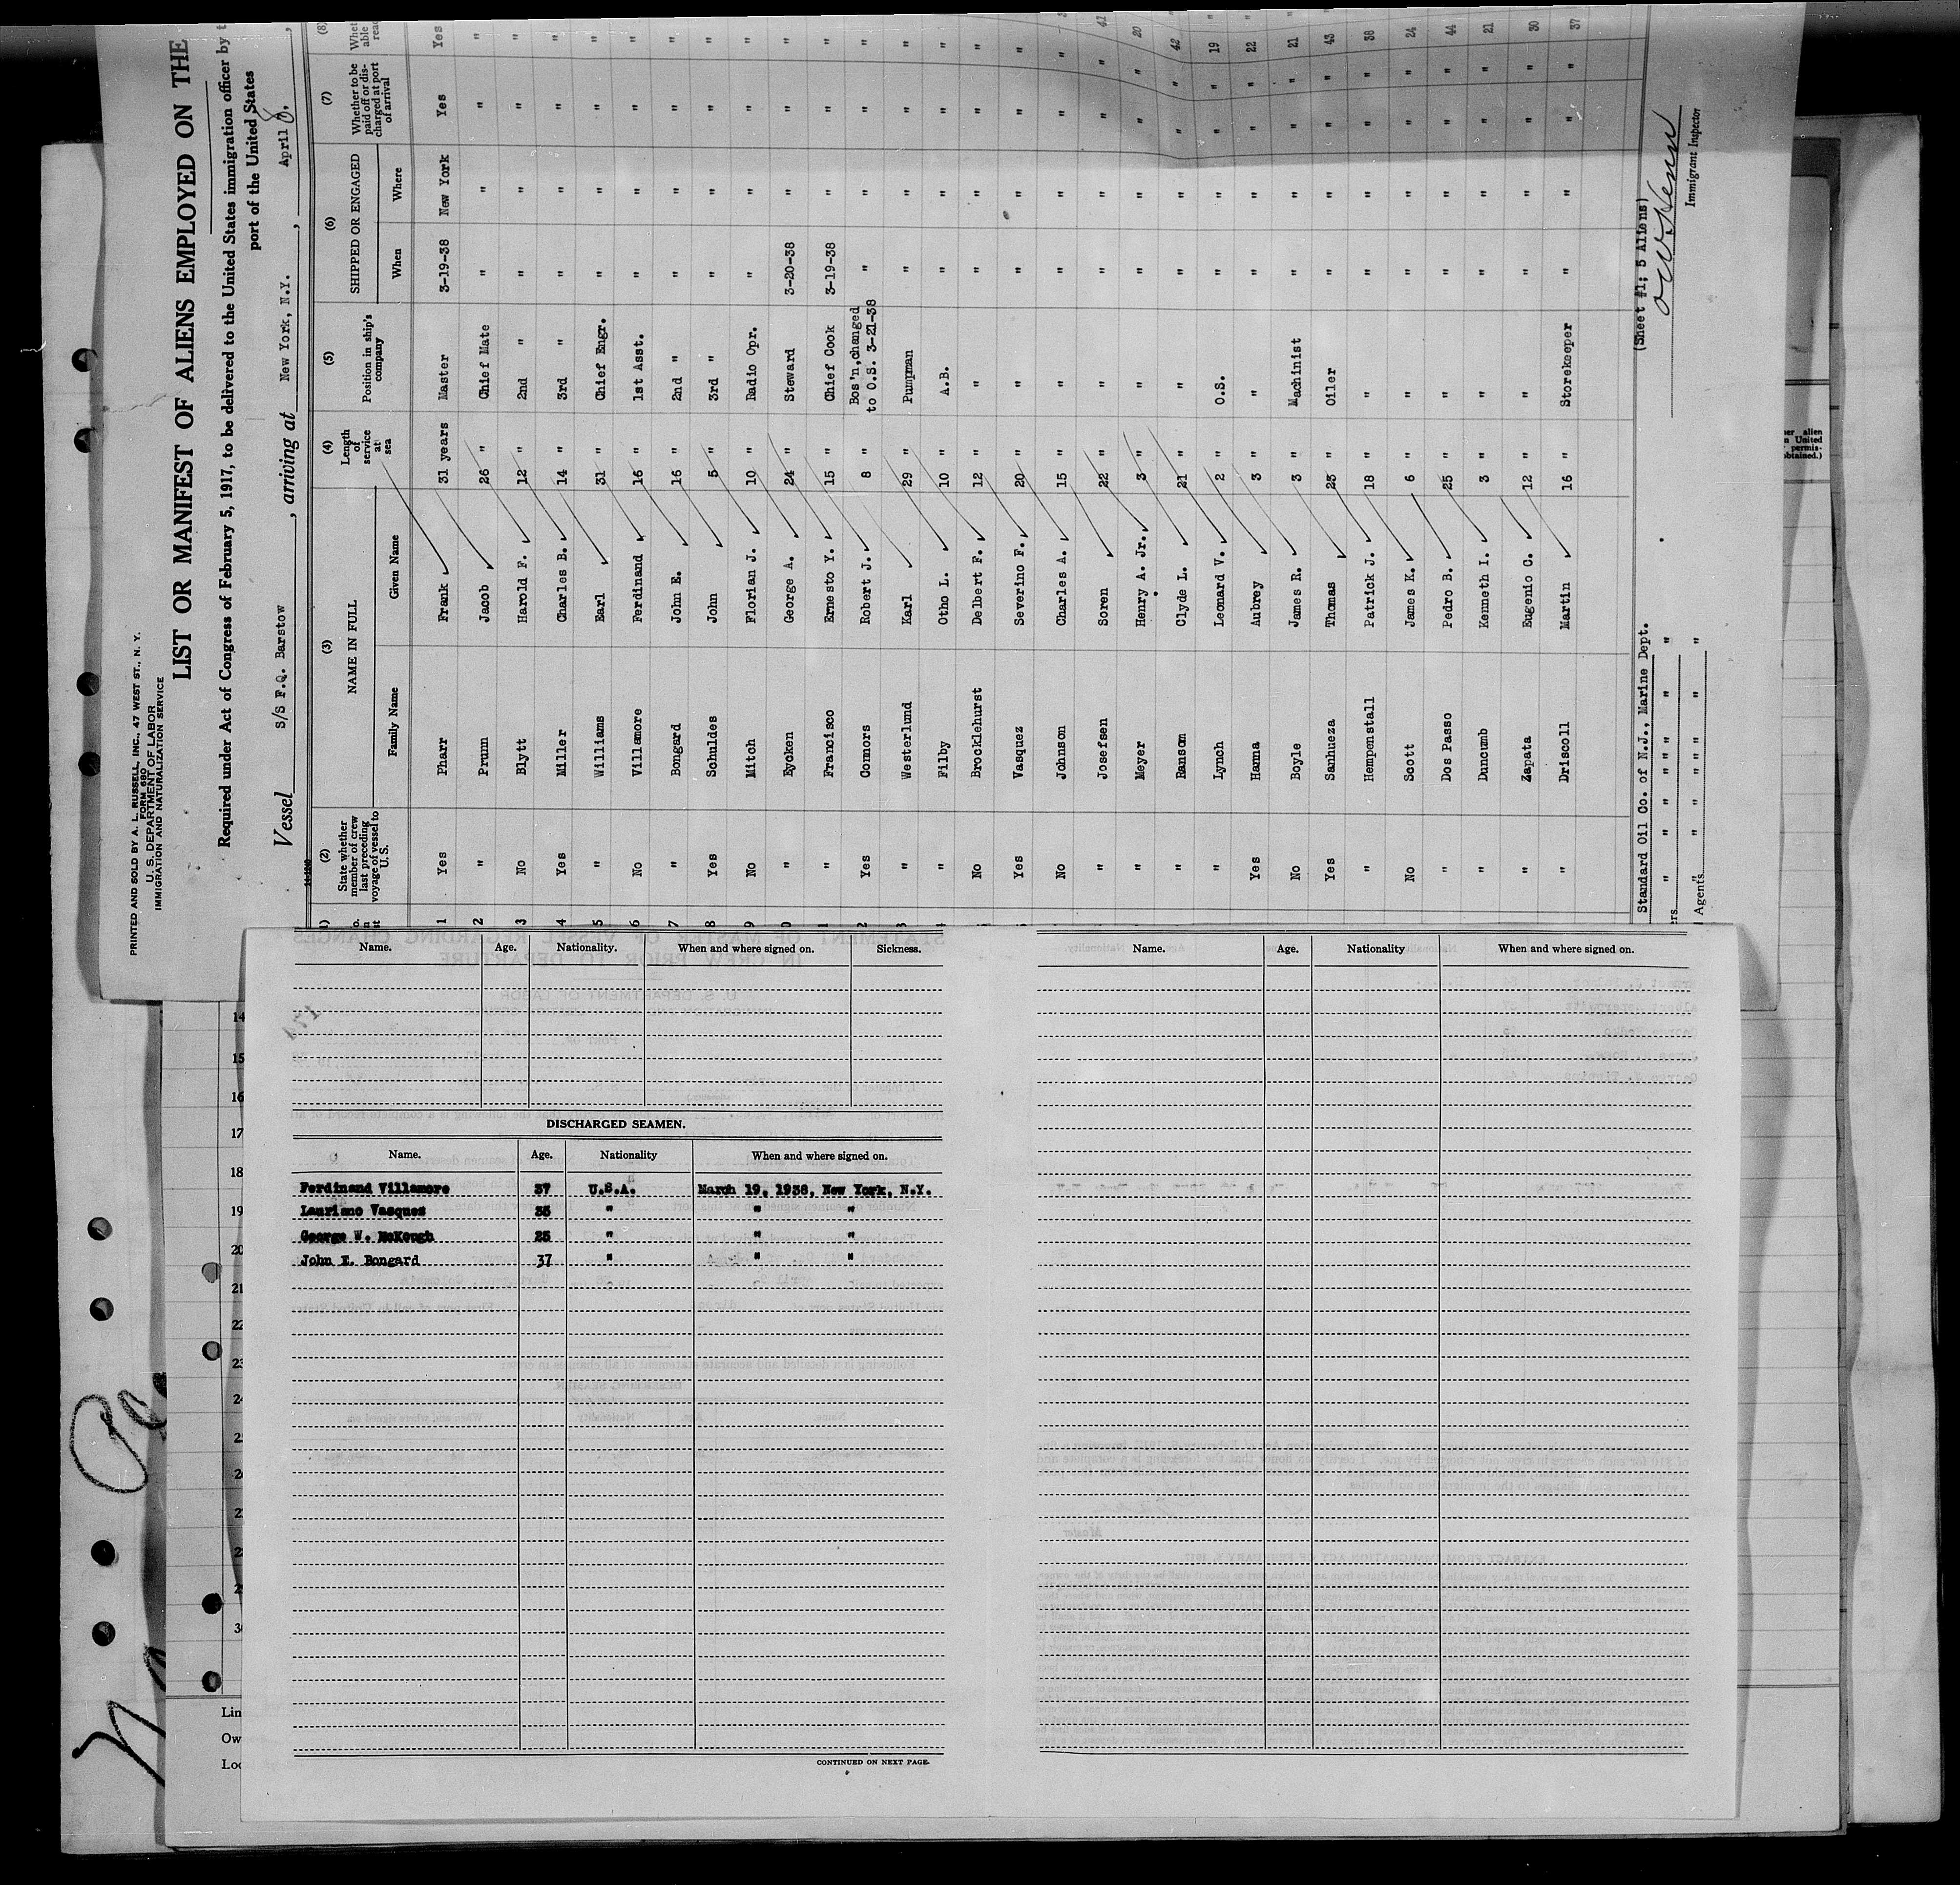 PRINTED AND SOLD BY A. L. RUSSELL, INC., 47 WEST ST., N. Y.
FORM 680
U. S. DEPARTMENT OF LABOR
IMMIGRATION AND NATURALIZATION SERVICE
LIST OR MANIFEST OF ALIENS EMPLOYED ON THE
Required under Act of Congress of February 5, 1917, to be delivered to the United States immigration officer by
port of the United States
Vessel S/S F.Q. Barstow, arriving at New York, N.Y., April 8,
(2) (3) (4) (5) (6) (7) (8)
State whether member of crew last preceding voyage of vessel to U.S. NAME IN FULL Length of service at sea Position in ship's company SHIPPED OR ENGAGED Whether to be paid off or discharged at port of arrival
Family Name Given Name When Where
1 Yes Pharr Frank 31 years Master 3-19-38 New York Yes Yes
2 " Prunn Jacob 26 " Chief Mate " " " "
3 No Blytt Harold F. 12 " 2nd " " " " "
4 Yes Miller Charles B. 14 " 3rd " " " " "
5 " Williams Earl 31 " Chief Engr. " " " "
6 No Villamore Ferdinand 16 " 1st Asst. " " " "
7 " Bongard John E. 16 " 2nd " " " " "
8 Yes Schuldes John 5 " 3rd " " " " "
9 No Mitch Florian J. 10 " Radio Opr. " " " "
0 " Eycken George A. 24 " Steward 3-20-38 " " "
1 " Francisco Ernesto Y. 15 " Chief Cook 3-19-38 " " "
2 Yes Connors Robert J. 8 " Bos'n,changed to O.S. 3-21-38 " " " "
3 " Westerlund Karl 29 " Pumpman " " " "
4 " Filby Otho L. 10 " A.B. " " " "
No Brocklehurst Delbert F. 12 " " " " " "
Yes Vasquez Severino F. 20 " " " " " "
No Johnson Charles A. 15 " " " " " "
" Josefsen Soren 22 " " " " " " 41
" Meyer Henry A. Jr. 3 " " " " " " 20
" Ranson Clyde L. 21 " " " " " " 42
" Lynch Leonard V. 2 " O.S. " " " 19
Yes Hanna Aubrey 3 " " " " " 22
No Boyle James R. 3 " Machinist " " " 21
Yes Sanhueza Thomas 23 " Oiler " " " 43
" Hempenstall Patrick J. 18 " " " " " 38
No Scott James K. 6 " " " " " 24
" Dos Passo Pedro B. 25 " " " " " 44
" Duncumb Kenneth I. 3 " " " " " 21
" Zapata Eugenio C. 12 " " " " " 30
" Driscoll Martin 16 " Storekeeper " " " 37
Standard Oil Co. of N.J., Marine Dept. (Sheet #1; 5 Aliens)
Agents
Immigrant Inspector
Name. Age. Nationality. When and where signed on. Sickness.
DISCHARGED SEAMEN.
Name. Age. Nationality When and where signed on.
Ferdinand Villamore 37 U.S.A. March 19, 1938, New York, N.Y.
Lauriano Vasques 35 " " "
George W. McKeugh 25 " " "
John E. Bongard 37 " " "
CONTINUED ON NEXT PAGE.
Name. Age. Nationality When and where signed on.
14
15
16
17
18
19
20
21
22
23
24